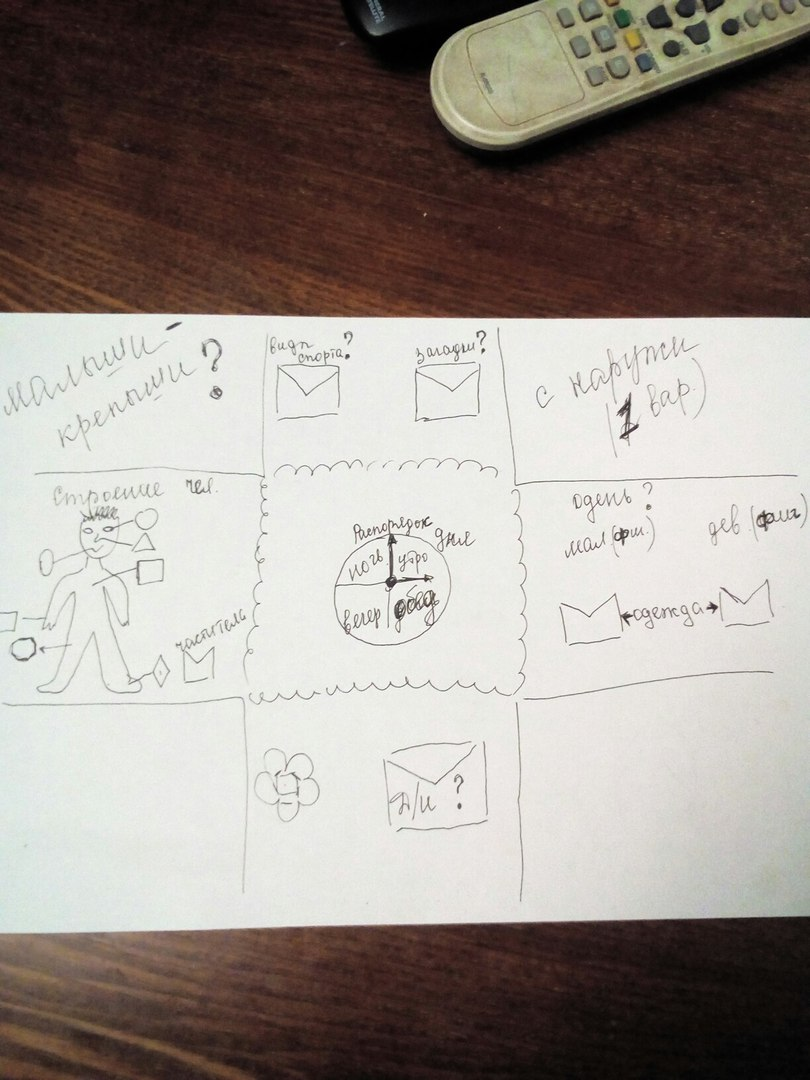 малыши-
крепыши?
виды
спорта?
загадки?
с наружи
(1 вар.)
Строение чел.
части тела
Распорядок
дня
ночь утро
вечер обед
Одень?
мал (фиг.) дев (фиг.)
одежда
Д/И ?